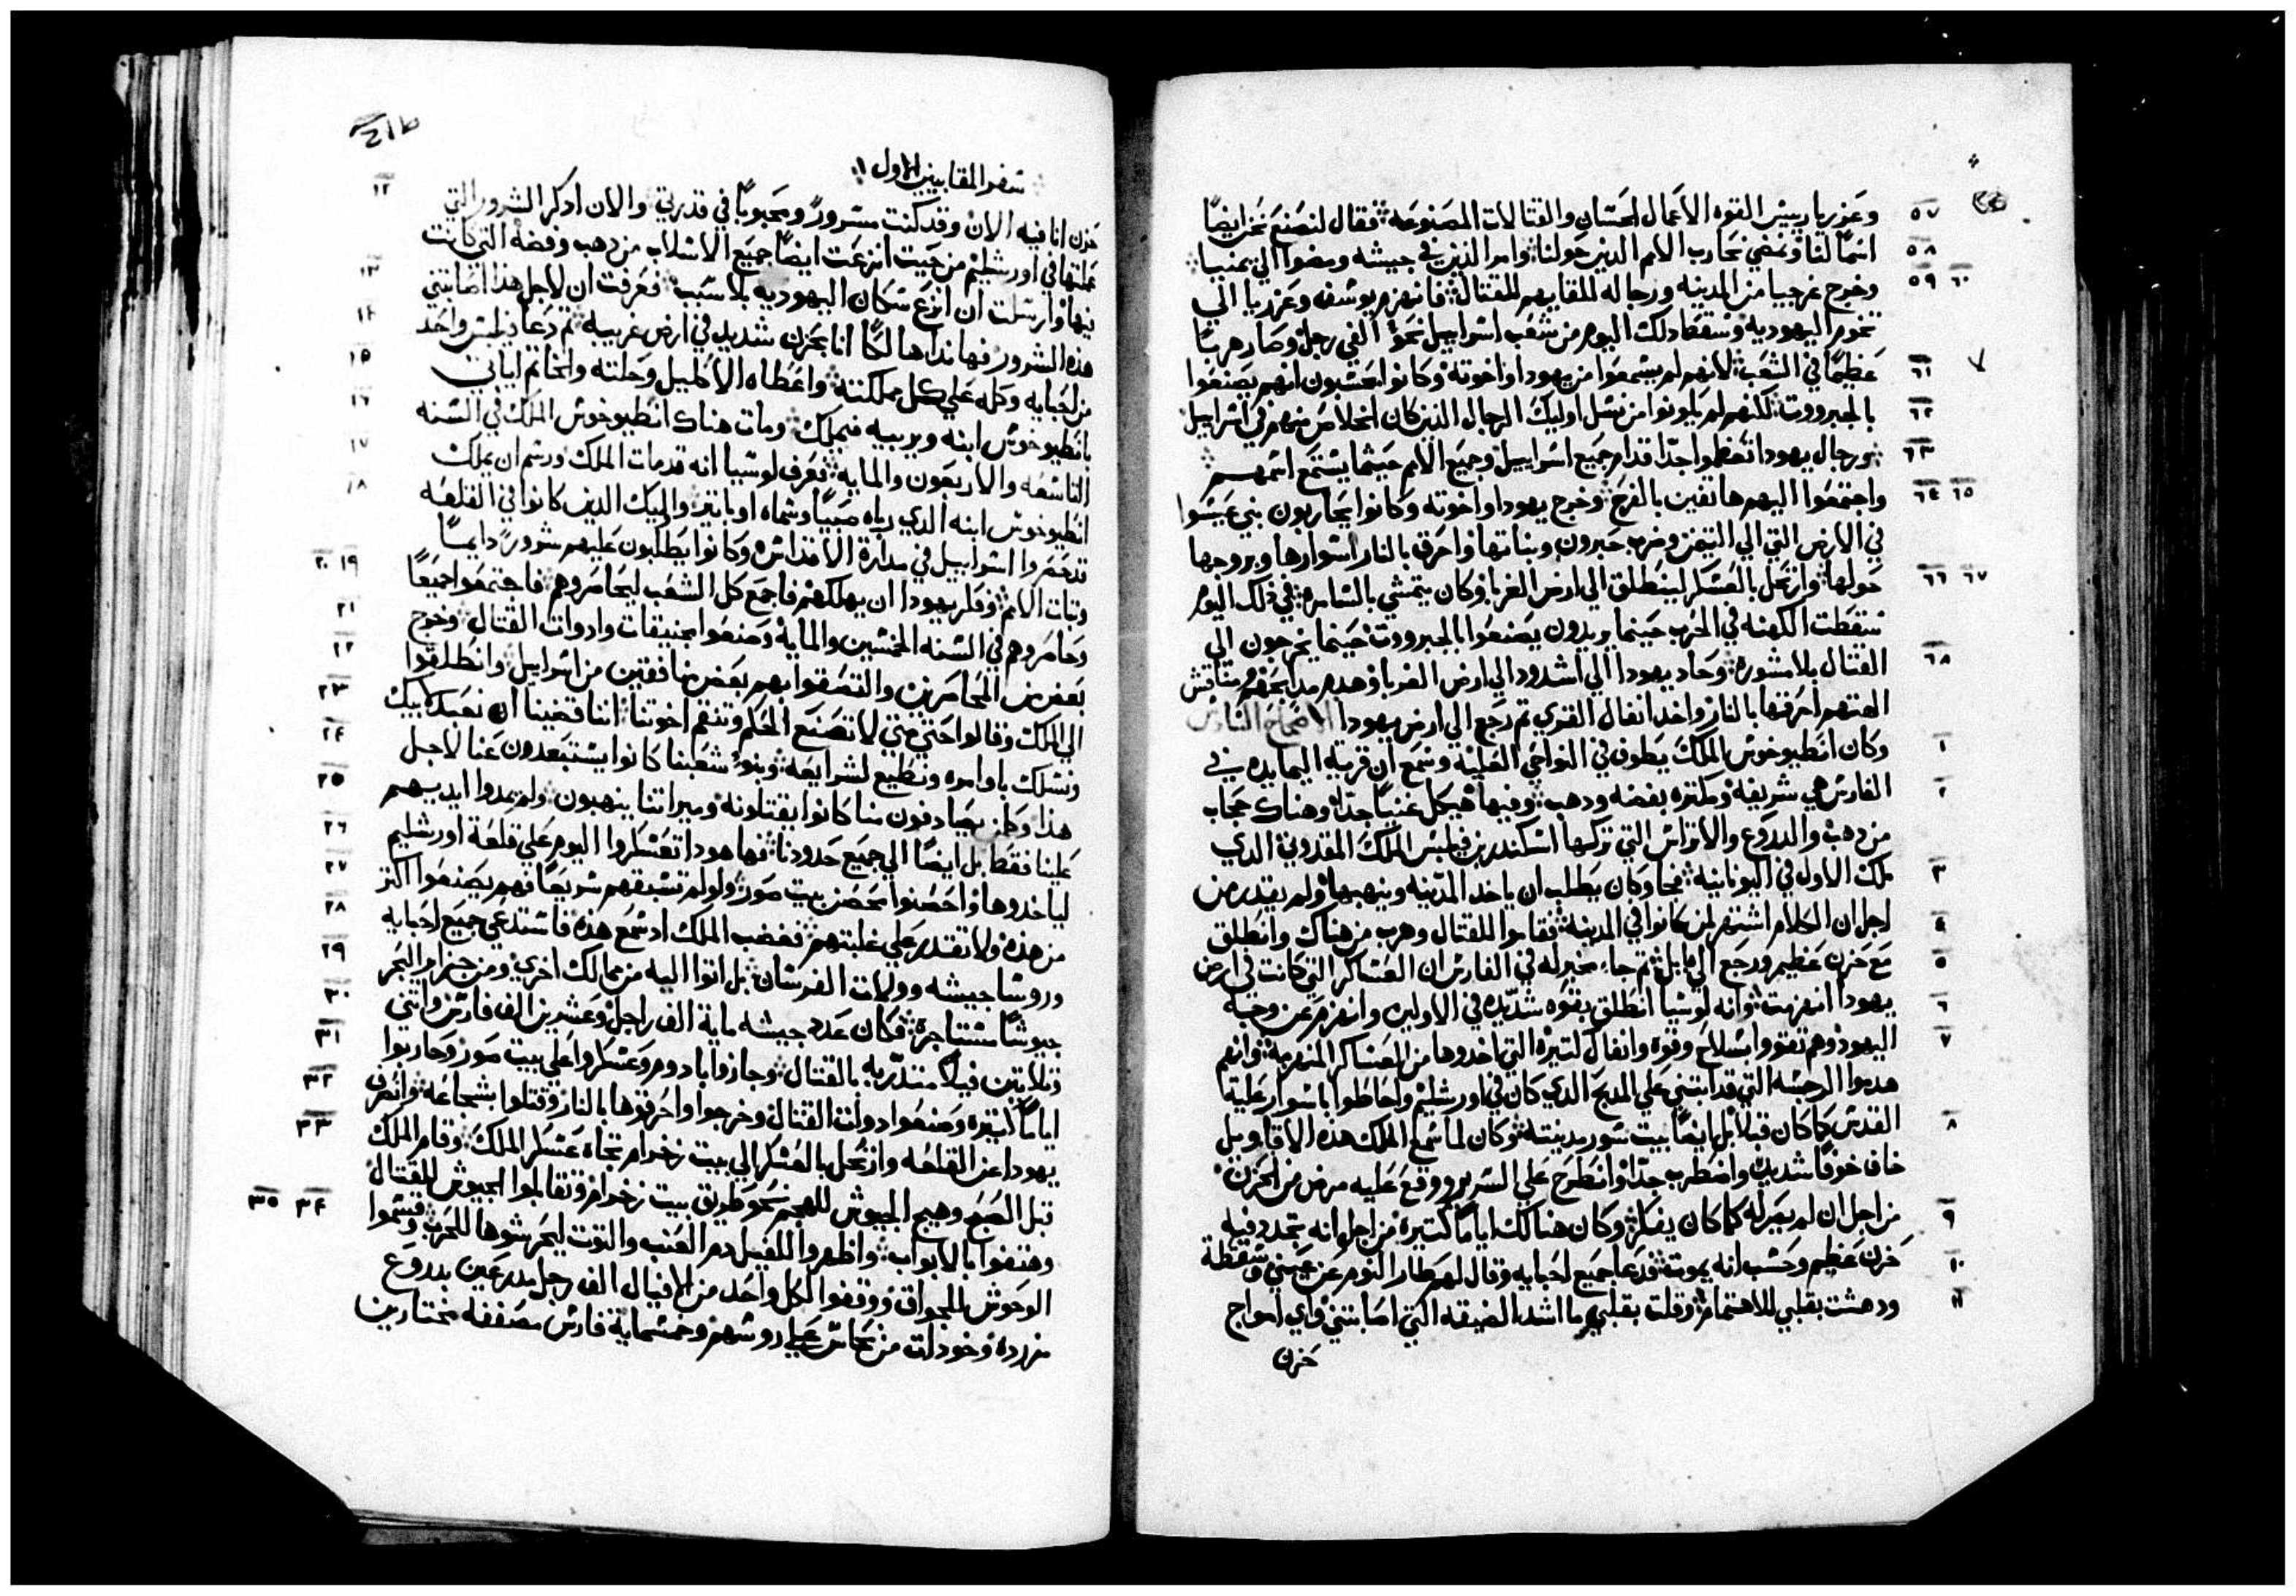 وعزريا رييس القوه الاعمال الحسان والقتالات المصنوعه فقال لنصنع نحن ايضًا ٥٧
اسمًا لنا ونمضي نحارب الامم الدين حولنا وامر الذين في جيشه ومضوا الي يمنيا ٥٨
وخرج غرجيا من المدينه ورجاله للقايهم للقتال فانهزم يوسف وعزريا الي ٥٩ ٦٠
تخوم اليهوديه وسقط دلك اليوم من شعب اسراييل نحو الفي رجل وصار هربًا
عظيمًا في الشعب لانهم لم يسمعوا من يهودا واخوته وكانوا يحسبون انهم يصنعوا ٦١
بالجبرووت لكنهم لم يكونوا من نسل اوليك الرجال الدين كان الخلاص منهم في اسراييل ٦٢
ورجال يهودا تعظموا جدًا قدام جميع اسراييل وجميع الامم حيثما يستمع اسمهم ٦٣
واجتمعوا اليهم هاتفين بالفرح وخرج يهودا واخوته وكانوا يحاربون بني عيسوا ٦٤ ٦٥
في الارض التي الي التيمن وضرب حبرون وبناتها واحرق بالنار اسوارها وبروجها
حولها وارتحل بالعسكر لينطلق الي ارض الغربا وكان يتمشي بالسامره في ذلك اليوم ٦٦ ٦٧
سقطت الكهنه في الحرب حينما يريدون يصنعوا بالجبرووت حينما يخرجون الي
القتال بلا مشوره وحاد يهودا الي اشدود الي ارض الغربا وهدم مدابحهم ومناقش ٦٨
الهتهم احرقها بالنار واخد انفال القري تم رجع الي ارض يهودا الاصحاح السادس
وكان انطيوخوش الملك يطوف في النواحي العليه وسمع ان قرية اليمايده في ١
الفارس هي شريفة ومكتره بفضه ودهب وفيها هيكل غنيًا جدًا وهناك حجاب ٢
من دهب والدروع والاتراس التي تركها اسكندر بن فيلبس الملك المقدوني الدي
ملك الاول في اليونانية فجا وكان يطلب ان ياخد المدينه وينهبها ولم يقتدر من ٣
اجل ان الكلام اشتهر لمن كانوا في المدينه فقاموا للقتال وهرب من هناك وانطلق ٤
مع حزن عظيم ورجع الي بابل تم جاء مخبر له في الفارس ان العساكر التي كانت في ارض ٥
يهودا انهزمت وانه لوسيا انطلق بقوه شديده في الاولين وانهزم عن وجه ٦
اليهود وهم تقووا بسلاح وقوه وانفال كتيره التي اخدوها من العساكر المنهزمة وانهم ٧
هدموا الرجسه التي قد ابتني علي المدبح الدي كان في اورشليم واحاطوا باسوار عليه
القدس كما كان قبلًا بل ايضًا بيت سور مدينته وكان لما سمع الملك هذه الاقاويل ٨
خاف خوفًا شديدًا واضطرب جدًا وانطرح علي السرير ووقع عليه مرض من الحزن
من اجل ان لم يصر له كما كان يفكر وكان هنالك ايامًا كتيرة من اجل انه تجدد فيه ٩
حزن عظيم وحسب انه يموت فدعا جميع احبايه وقال لهم طار النوم عن عيني وسقطة ١٠
ودهشت بقلبي للاهتمام وقلت بقلبي ما اشد الضيقه التي اصابتني واي امواج ١١
حزن
سفر المقابيين الاول
حزن انا فيه الان وقد كنت مسرورً ومحبوبًا في قدرتي والان ادكر الشرور التي ١٢
عملتها في اورشليم من حيت انتزعت ايضًا جميع الاسلاب من دهب وفضه التي كانت
فيها وارسلت ان انزع سكان اليهوديه بلا سبب فعرفت ان لاجل هدا اصابتني ١٣
هذه الشرور فها نداهالكًا انا بحزن شديد في ارض غريبه تم دعا فيلبس واحد ١٤
من احبايه وكله علي كل مملكته واعطاه الاكليل وحلته والخاتم لياتي ١٥
بانطيوخوش ابنه ويربيه فيملك ومات هناك انطيوخوش الملك في السنه ١٦
التاسعه والاربعون والمايه فعرف لوسيا انه قد مات الملك ورسم ان يملك ١٧
انطيوخوش ابنه الدي رباه صبيًا وسماه اوباتر واليك الدين كانوا في القلعه ١٨
قد حصروا اسراييل في مدارة الاقداس وكانوا يطلبون عليهم شرورً دايمًا
وتبات الامم وفكر يهودا ان يهلكهم فاجمع كل الشعب ليحاصروهم فاجتمعوا جميعًا ١٩ ٢٠
وحاصروهم في السنه الخمسين والمايه وصنعوا مجنيقات وادوات القتال وخرج ٢١
بعض من المحاصرين والتصقوا بهم بعض منافقين من اسراييل وانطلقوا ٢٢
الي الملك وقالوا حتي متي لا تصنع الحكم وتنقم اخوتنا اننا قضينا ان نعبد لابيك ٢٣
ونسلك باوامره ونطيع لشرايعه وبنو شعبنا كانوا يستبعدون عنا لاجل ٢٤
هدا وكلمن يصادفون منا كانوا يقتلونه وميراتنا ينهبون ولم يمدوا ايديهم ٢٥
علينا فقط بل ايضًا الي جميع حدودنا فها هودا تعسكروا اليوم علي قلعة اورشليم ٢٦
لياخدوها واحصنوا محصن بيت صور ولو لم تسبقهم سريعًا فهم يصنعوا اكتر ٢٧
من هذه ولا تقتدر علي غلبتهم فغضب الملك اد سمع هذه فاستدعي جميع احبايه ٢٨
وروسا جيشه وولات الفرسان بل اتوا اليه من ممالك اخري ومن جزاير البحر ٢٩
جيوشًا مستاجرة فكان عدد جيشه ماية الف راجل وعشرين الف فارس واتني ٣٠
وتلاتين فيلًا متدربه بالقتال وجازوا بادوم وعسكروا علي بيت صور وحاربوا ٣١
ايامًا كتيره وصنعوا دوات القتال وخرجوا واحرقوها بالنار وقتلوا بشجاعه وانصرف ٣٢
يهودا عن القلعه وارتحل بالعسكر الي بيت زخرام تجاه عسكر الملك وقام الملك ٣٣
قبل الصبح وهيج الجيوش للهجم نحو طريق بيت زخرام وتقابلوا الجيوش للقتال
وهتفوا بالابواب واظهروا للفيل دم العنب والتوت ليحرشوها للحرب وقسموا ٣٤ ٣٥
الوحوش للجواق ووقفوا لكل واحد من الافيال الف رجل مدرعين بدروع
مزرده وخودات من نحاس علي روسهم وخمسماية فارس مصففه مختارين